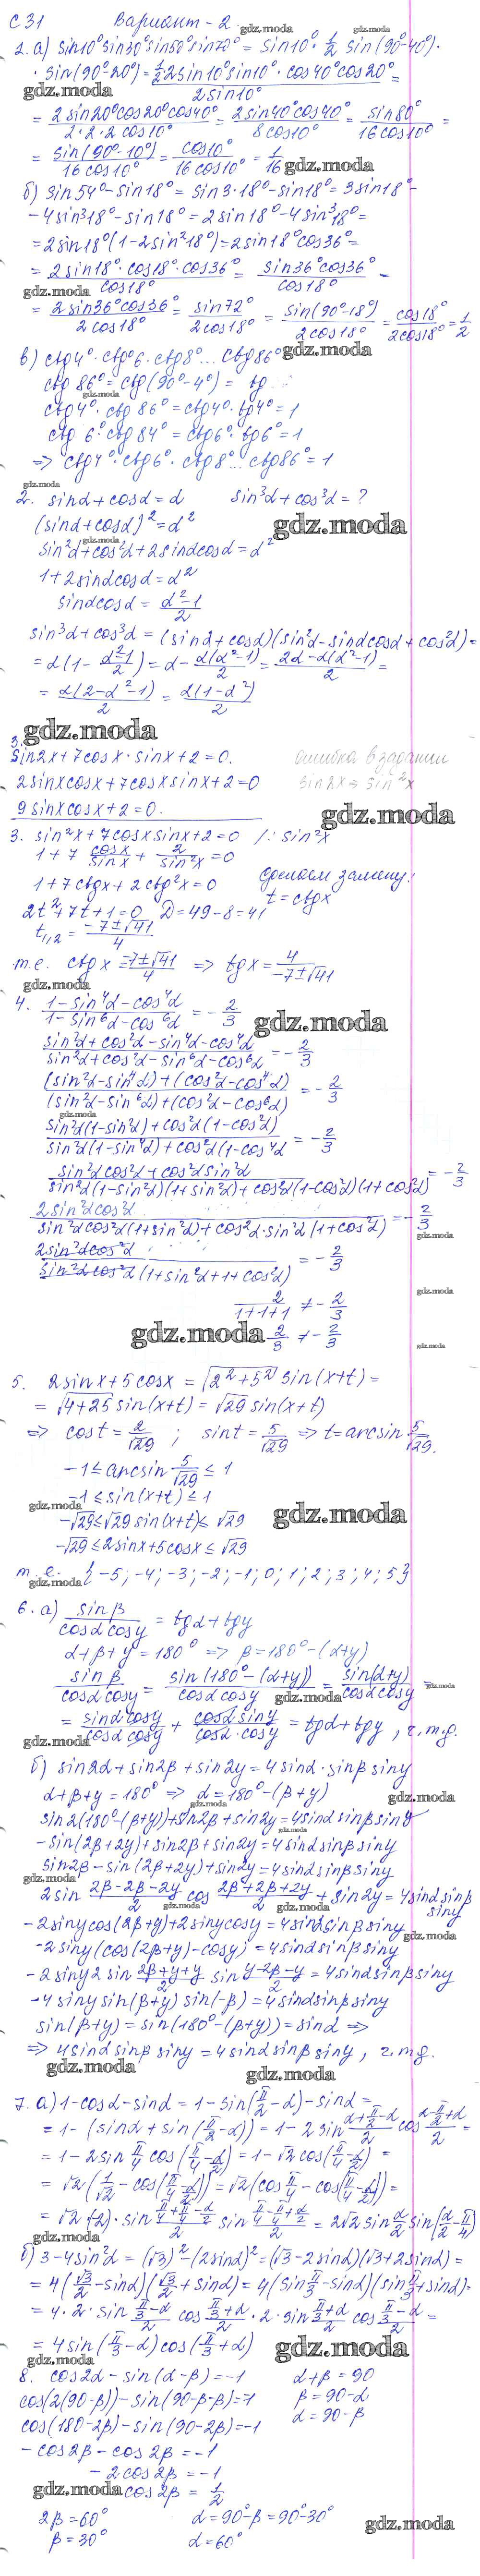 С 31 Вариант - 2.
gdz.moda
2. а) sin10° sin30° sin50° sin70° = sin10° · 1/2 sin(90°-40°)·
· sin(90°-20°) = 1/2 2sin10° sin10° · cos40° cos20° / 2sin10° =
gdz.moda
= 2sin20°cos20°cos40° / 2·2·2 cos10° = 2sin40°cos40° / 8cos10° = sin80° / 16cos10° =
= sin(90°-10°) / 16cos10° = cos10° / 16cos10° = 1/16
gdz.moda
б) sin54° - sin18° = sin3·18° - sin18° = 3sin18° -
- 4sin³18° - sin18° = 2sin18° - 4sin³18° =
= 2sin18°(1-2sin²18°) = 2sin18°cos36° =
= 2sin18°·cos18°·cos36° / cos18° = sin36°cos36° / cos18° =
gdz.moda
= 2sin36°cos36° / 2cos18° = sin72° / 2cos18° = sin(90°-18°) / 2cos18° = cos18° / 2cos18° = 1/2
в) ctg4°·ctg°6·ctg8°... ctg86°
gdz.moda
ctg86° = ctg(90°-4°) = tg
gdz.moda
ctg4°·ctg86° = ctg4°·tg4° = 1
ctg6°·ctg84° = ctg6°·tg6° = 1
=> ctg4°·ctg6°·ctg8°... ctg86° = 1
gdz.moda
2. sinα + cosα = α sin³α + cos³α = ?
(sinα + cosα)² = α²
gdz.moda
sin²α + cos²α + 2sinαcosα = α²
1 + 2sinαcosα = α²
sinαcosα = α²-1 / 2
sin³α + cos³α = (sinα + cosα)(sin²α - sinαcosα + cos²α) =
= α(1 - α²-1 / 2) = α - α(α²-1) / 2 = 2α-α(α²-1) / 2 =
= α(2-α²-1) / 2 = α(1-α²) / 2
gdz.moda
3.
sin2x + 7cosx·sinx + 2 = 0. ошибка в задании
2sinxcosx + 7cosxsinx + 2 = 0 sin2x → sin²x
9sinxcosx + 2 = 0.
gdz.moda
3. sin²x + 7cosxsinx + 2 = 0 /: sin²x
1 + 7 cosx/sinx + 2/sin²x = 0
1 + 7ctgx + 2ctg²x = 0 сделаем замену:
2t² + 7t + 1 = 0 D = 49-8 = 41 t = ctgx
t₁,₂ = -7±√41 / 4
т.е. ctgx = -7±√41 / 4 => tgx = 4 / -7±√41
gdz.moda
4. 1-sin⁴α-cos⁴α / 1-sin⁶α-cos⁶α = -2/3
gdz.moda
sin²α+cos²α-sin⁴α-cos⁴α / sin²α+cos²α-sin⁶α-cos⁶α = -2/3
(sin²α-sin⁴α)+(cos²α-cos⁴α) / (sin²α-sin⁶α)+(cos²α-cos⁶α) = -2/3
gdz.moda
sin²α(1-sin²α)+cos²α(1-cos²α) / sin²α(1-sin⁴α)+cos²α(1-cos⁴α = -2/3
sin²αcos²α+cos²αsin²α / sin²α(1-sin²α)(1+sin²α)+cos²α(1-cos²α)(1+cos²α) = -2/3
2sin²αcos²α / sin²αcos²α(1+sin²α)+cos²α·sin²α(1+cos²α) = -2/3
gdz.moda
2sin²αcos²α / sin²αcos²α(1+sin²α+1+cos²α) = -2/3
gdz.moda
2 / 1+1+1 ≠ -2/3
gdz.moda
2/3 ≠ -2/3
gdz.moda
5. 2sinx + 5cosx = √(2²+5²) sin(x+t) =
= √(4+25) sin(x+t) = √29 sin(x+t)
=> cost = 2/√29 ; sint = 5/√29 => t = arcsin 5/√29.
-1 ≤ arcsin 5/√29 ≤ 1
-1 ≤ sin(x+t) ≤ 1
gdz.moda
gdz.moda
-√29 ≤ √29 sin(x+t) ≤ √29
-√29 ≤ 2sinx + 5cosx ≤ √29
т.е. {-5; -4; -3; -2; -1; 0; 1; 2; 3; 4; 5}
gdz.moda
6. а) sinβ / cosαcosγ = tgα + tgγ
α + β + γ = 180° => β = 180° - (α+γ)
sinβ / cosαcosγ = sin(180°-(α+γ)) / cosαcosγ = sin(α+γ) / cosαcosγ =
gdz.moda
gdz.moda
= sinαcosγ / cosαcosγ + cosαsinγ / cosα·cosγ = tgα + tgγ, ч.т.д.
gdz.moda
б) sin2α + sin2β + sin2γ = 4sinα·sinβsinγ
α + β + γ = 180° => α = 180° - (β+γ)
gdz.moda
gdz.moda
sin2(180°-(β+γ)) + sin2β + sin2γ = 4sinαsinβsinγ
gdz.moda
-sin(2β+2γ) + sin2β + sin2γ = 4sinαsinβsinγ
sin2β - sin(2β+2γ) + sin2γ = 4sinαsinβsinγ
gdz.moda
2sin 2β-2β-2γ / 2 cos 2β+2β+2γ / 2 + sin2γ = 4sinαsinβ sinγ
gdz.moda
-2sinγcos(2β+γ) + 2sinγcosγ = 4sinαsinβsinγ
gdz.moda
-2sinγ(cos(2β+γ) - cosγ) = 4sinαsinβsinγ
-2sinγ2sin 2β+γ+γ / 2 sin γ-2β-γ / 2 = 4sinαsinβsinγ
-4sinγsin(β+γ)sin(-β) = 4sinαsinβsinγ
sin(β+γ) = sin(180°-(β+γ)) = sinα =>
=> 4sinαsinβsinγ = 4sinαsinβsinγ, ч.т.д.
gdz.moda
gdz.moda
7. а) 1-cosα-sinα = 1-sin(π/2-α)-sinα =
= 1-(sinα+sin(π/2-α)) = 1-2sin α+π/2-α / 2 cos α-π/2+α / 2 =
= 1-2sin π/4 cos(π/4-α/2) = 1-√2cos(π/4-α/2) =
= √2(1/√2 - cos(π/4-α/2)) = √2(cos π/4 - cos(π/4-α/2)) =
= √2(-2)·sin π/4+π/4-α/2 / 2 sin π/4-π/4+α/2 / 2 = 2√2sin α/2 sin(α/2-π/4)
gdz.moda
б) 3-4sin²α = (√3)²-(2sinα)² = (√3-2sinα)(√3+2sinα) =
= 4(√3/2-sinα)(√3/2+sinα) = 4(sin π/3-sinα)(sin π/3+sinα) =
= 4·2·sin π/3-α / 2 cos π/3+α / 2 ·2·sin π/3+α / 2 cos π/3-α / 2 =
= 4sin(π/3-α)cos(π/3+α)
gdz.moda
gdz.moda
8. cos2α - sin(α-β) = -1 α+β = 90
cos(2(90-β)) - sin(90-β-β) = -1 β = 90-α
cos(180-2β) - sin(90-2β) = -1 α = 90-β
-cos2β - cos2β = -1
-2cos2β = -1
gdz.moda
cos2β = 1/2
2β = 60° α = 90°-β = 90°-30°
gdz.moda
β = 30° α = 60°